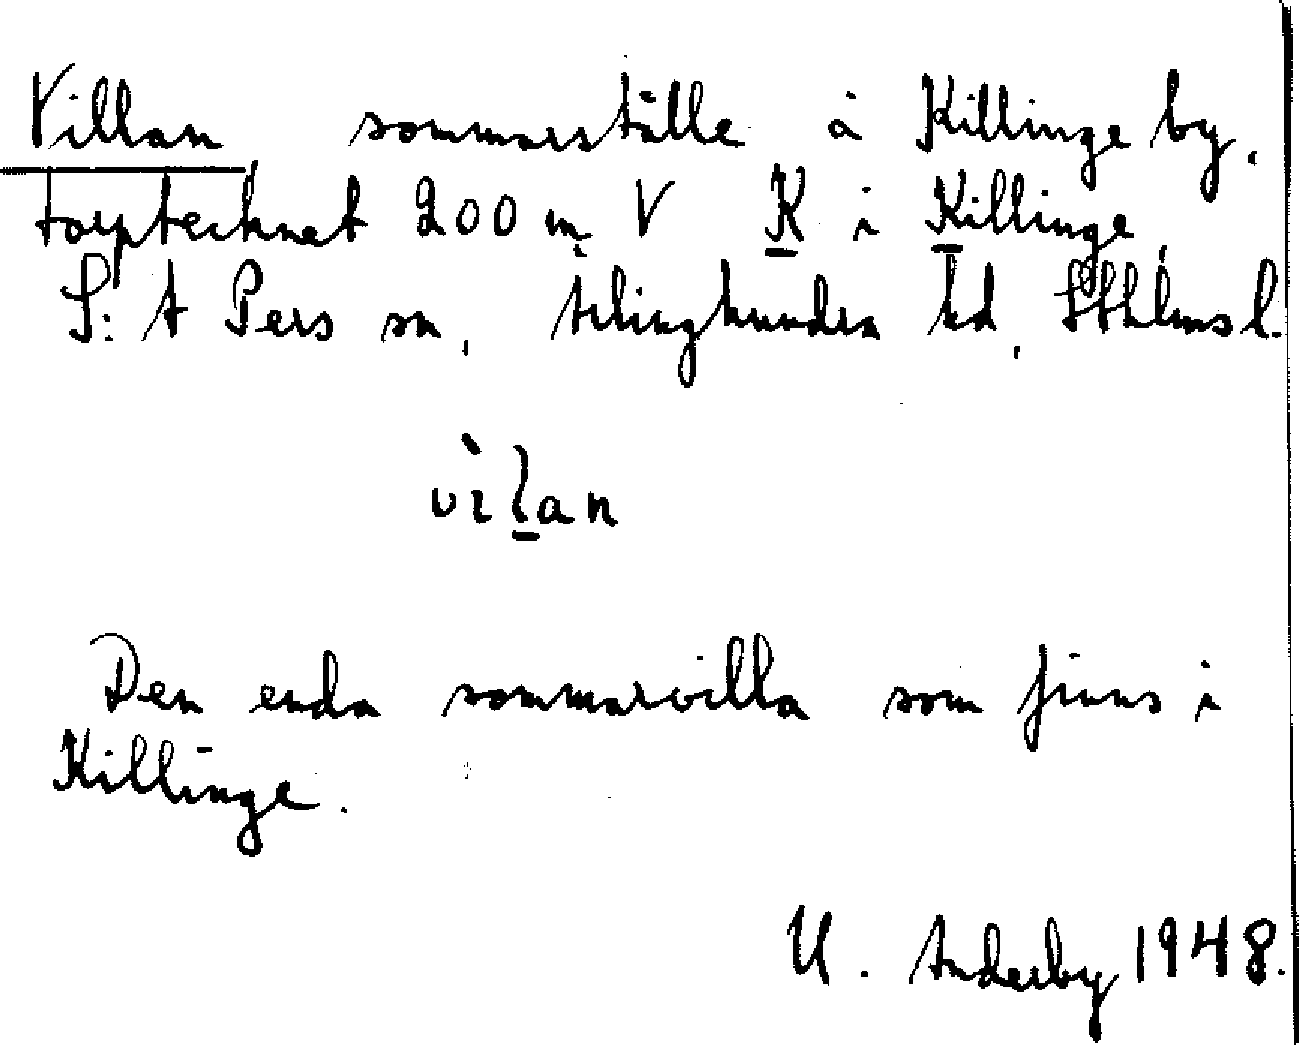 Villan sommarställe å Killinge by,
torptecknet 200 m V K i Killinge,
S:t Pers sn, Ärlinghundra hd, Sthlms l.
vìl̠an
Den enda sommarvilla som finns i
Killinge.
U. Anderby 1948.